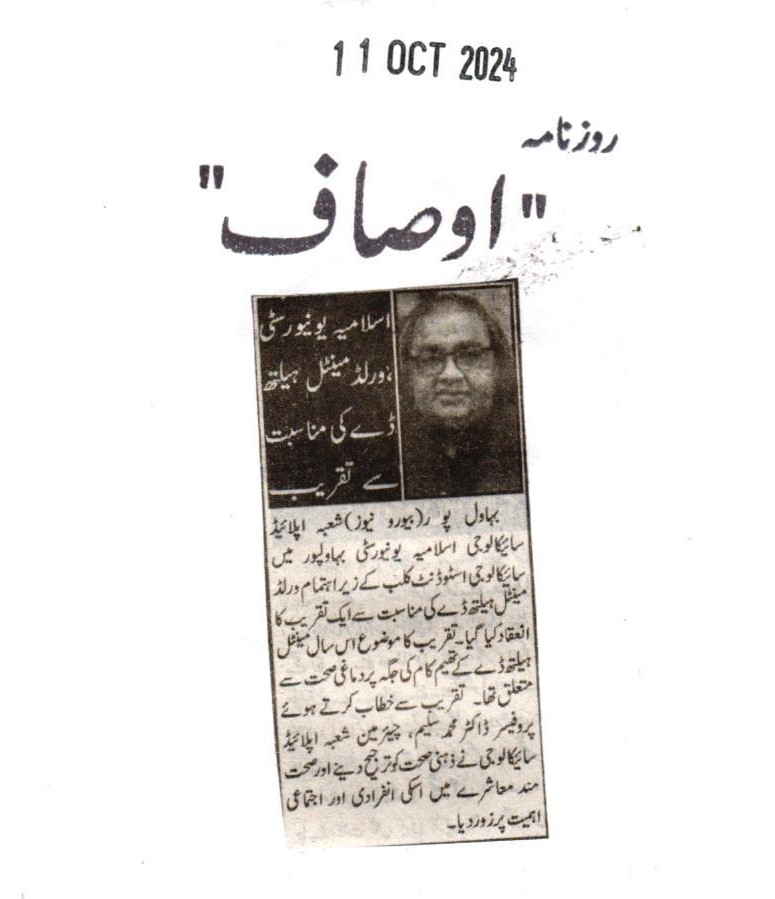 11 OCT 2024
روزنامہ
"اوصاف"
اسلامیہ یونیورسٹی
،ورلڈ مینٹل ہیلتھ
ڈے کی مناسبت
سے تقریب
بہاول پور(بیورو نیوز)شعبہ اپلائیڈ
سائیکالوجی اسلامیہ یونیورسٹی بہاولپور میں
سائیکالوجی اسٹوڈنٹ کلب کے زیراہتمام ورلڈ
مینٹل ہیلتھ ڈے کی مناسبت سے ایک تقریب کا
انعقاد کیا گیا۔ تقریب کا موضوع اس سال مینٹل
ہیلتھ ڈے کے تھیم کام کی جگہ پر دماغی صحت سے
متعلق تھا۔ تقریب سے خطاب کرتے ہوئے
پروفیسر ڈاکٹر محمد سلیم، چیئرمین شعبہ اپلائیڈ
سائیکالوجی نے ذہنی صحت کو ترجیح دینے اور صحت
مند معاشرے میں اسکی انفرادی اور اجتماعی
اہمیت پر زور دیا۔